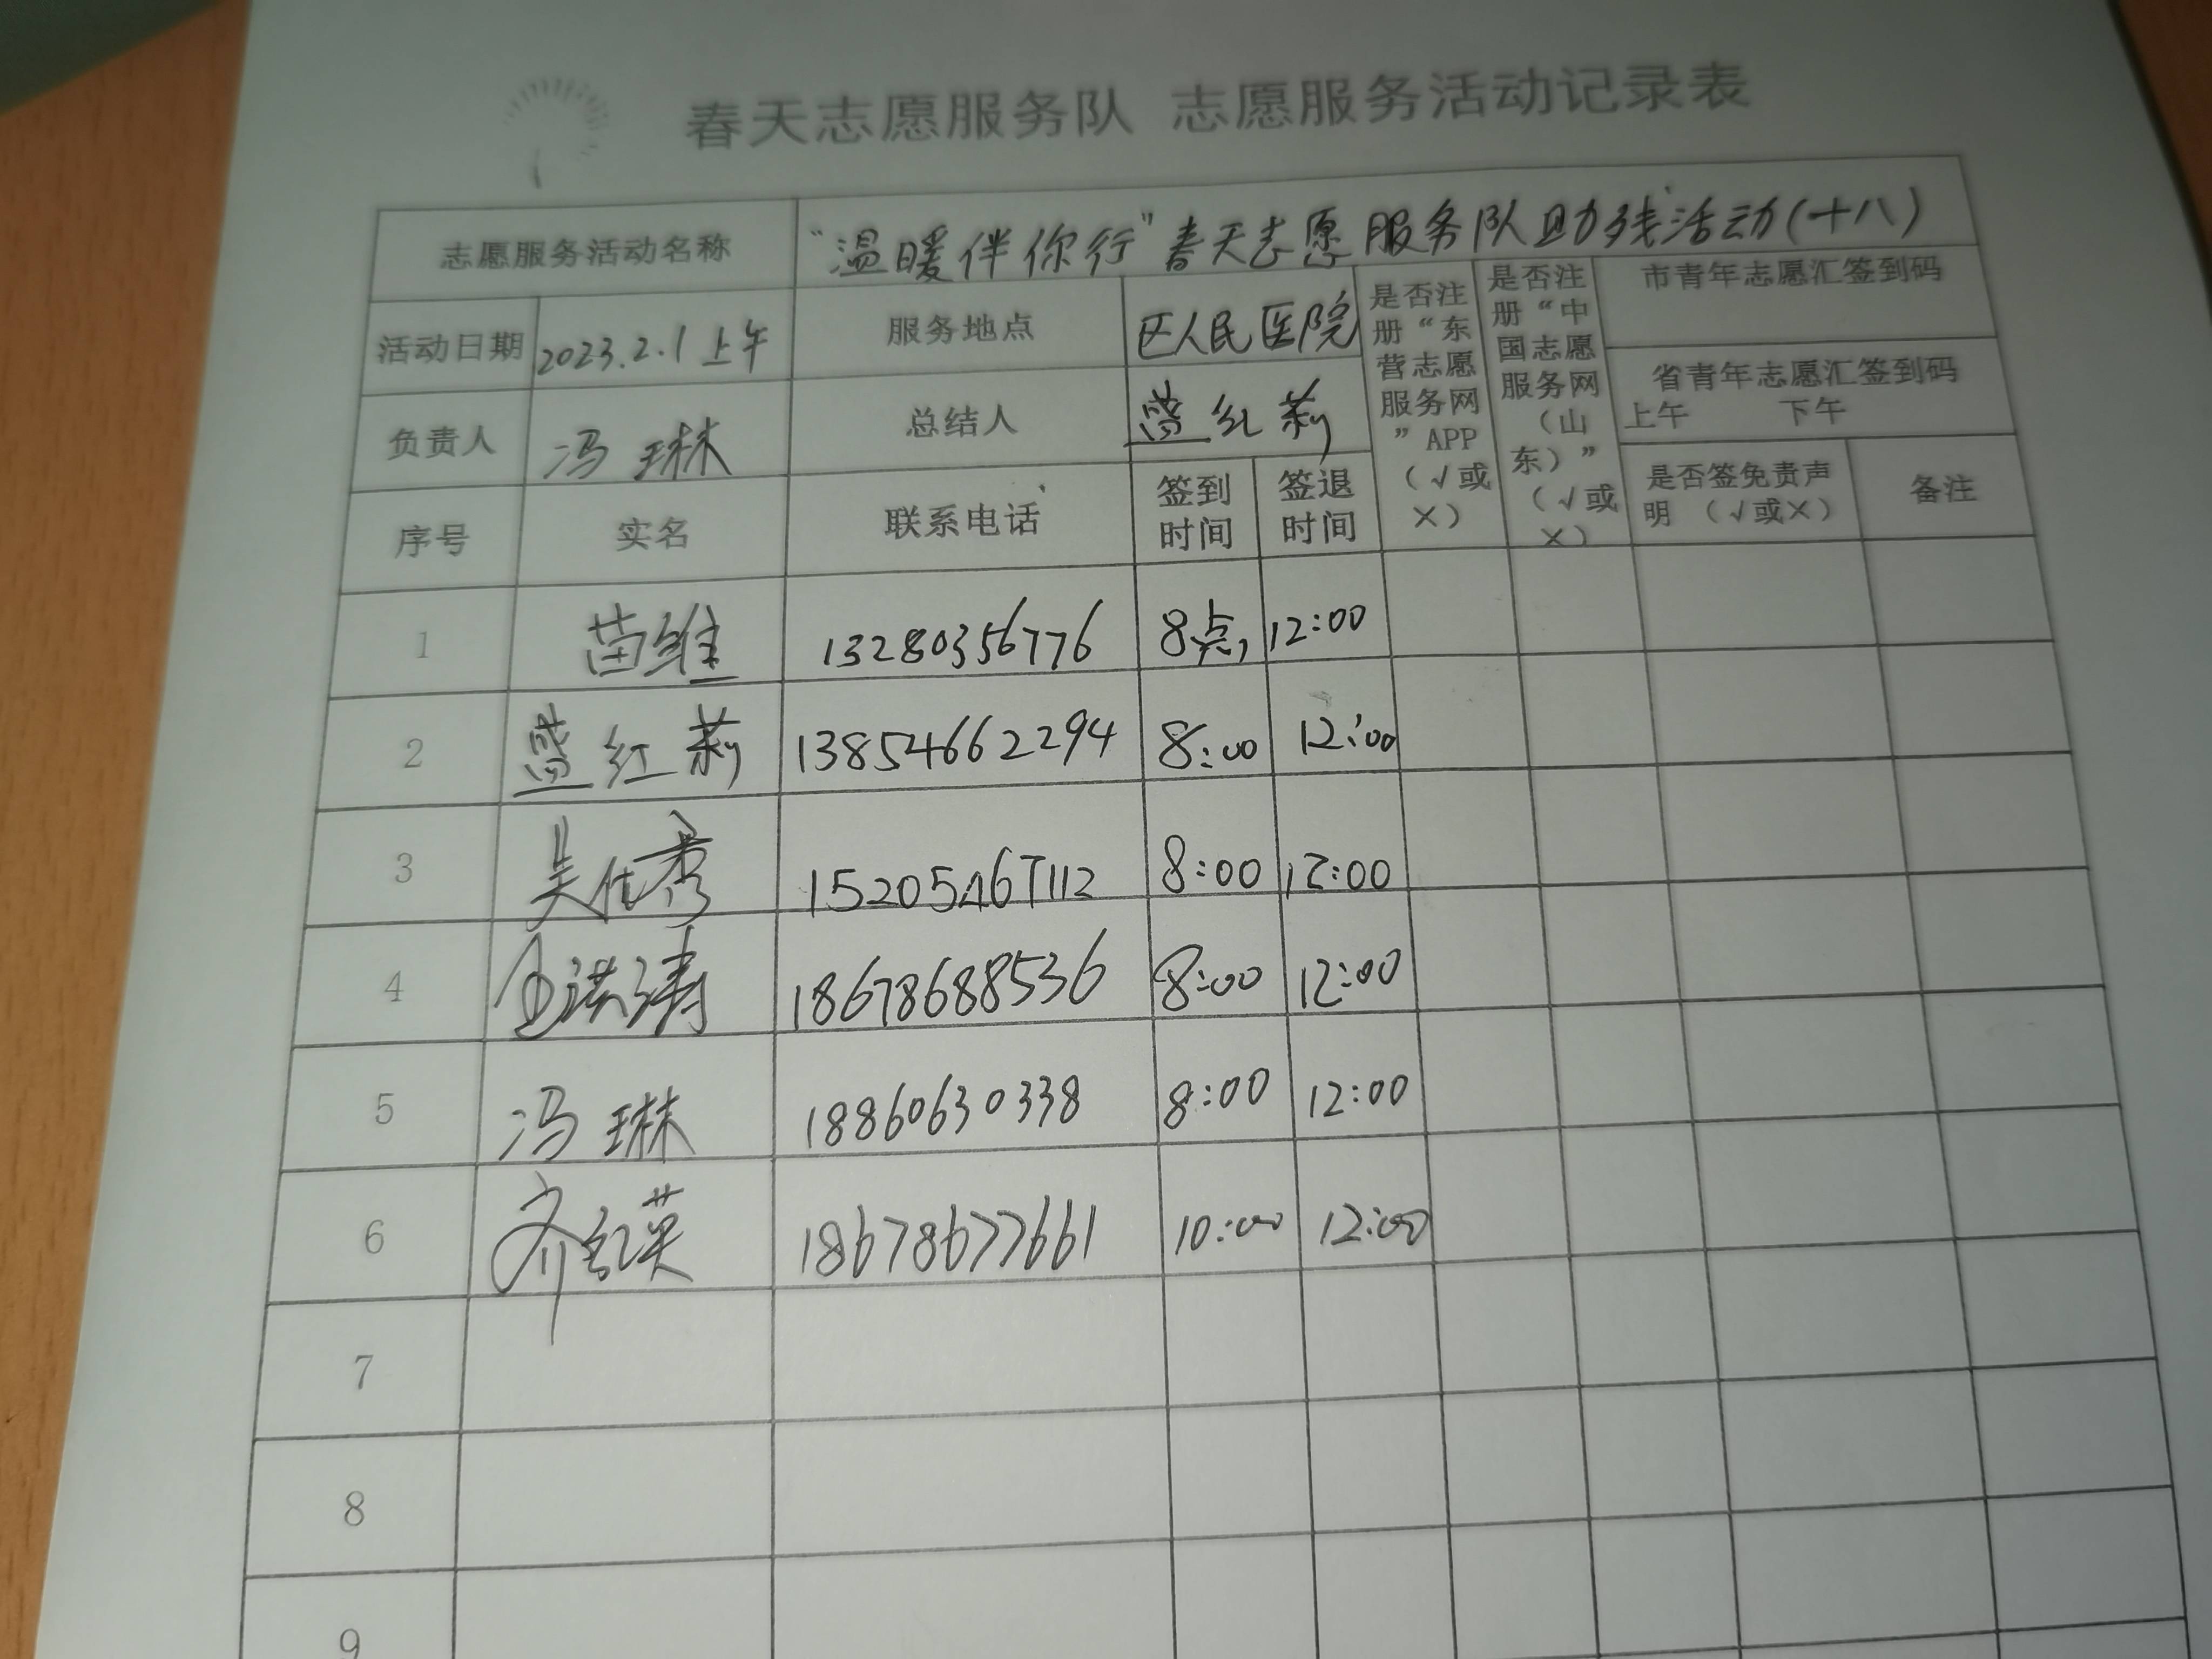 春天志愿服务队 志愿服务活动记录表
志愿服务活动名称 “温暖伴你行”春天志愿服务队助残活动(十八)
活动日期 2023.2.1上午 服务地点 区人民医院 是否注册“东营志愿服务网”APP(√或×) 是否注册“中国志愿服务网(山东)”(√或×) 市青年志愿汇签到码
省青年志愿汇签到码
上午 下午
负责人 冯琳 总结人 红莉
序号 实名 联系电话 签到时间 签退时间 是否签免责声明 (√或×) 备注
1 苗维 13280356776 8点 12:00
2 红莉 13854662294 8:00 12:00
3 吴仕秀 15205467112 8:00 12:00
4 洪涛 18678688536 8:00 12:00
5 冯琳 18860630338 8:00 12:00
6 齐红英 18678677661 10:00 12:00
7
8
9